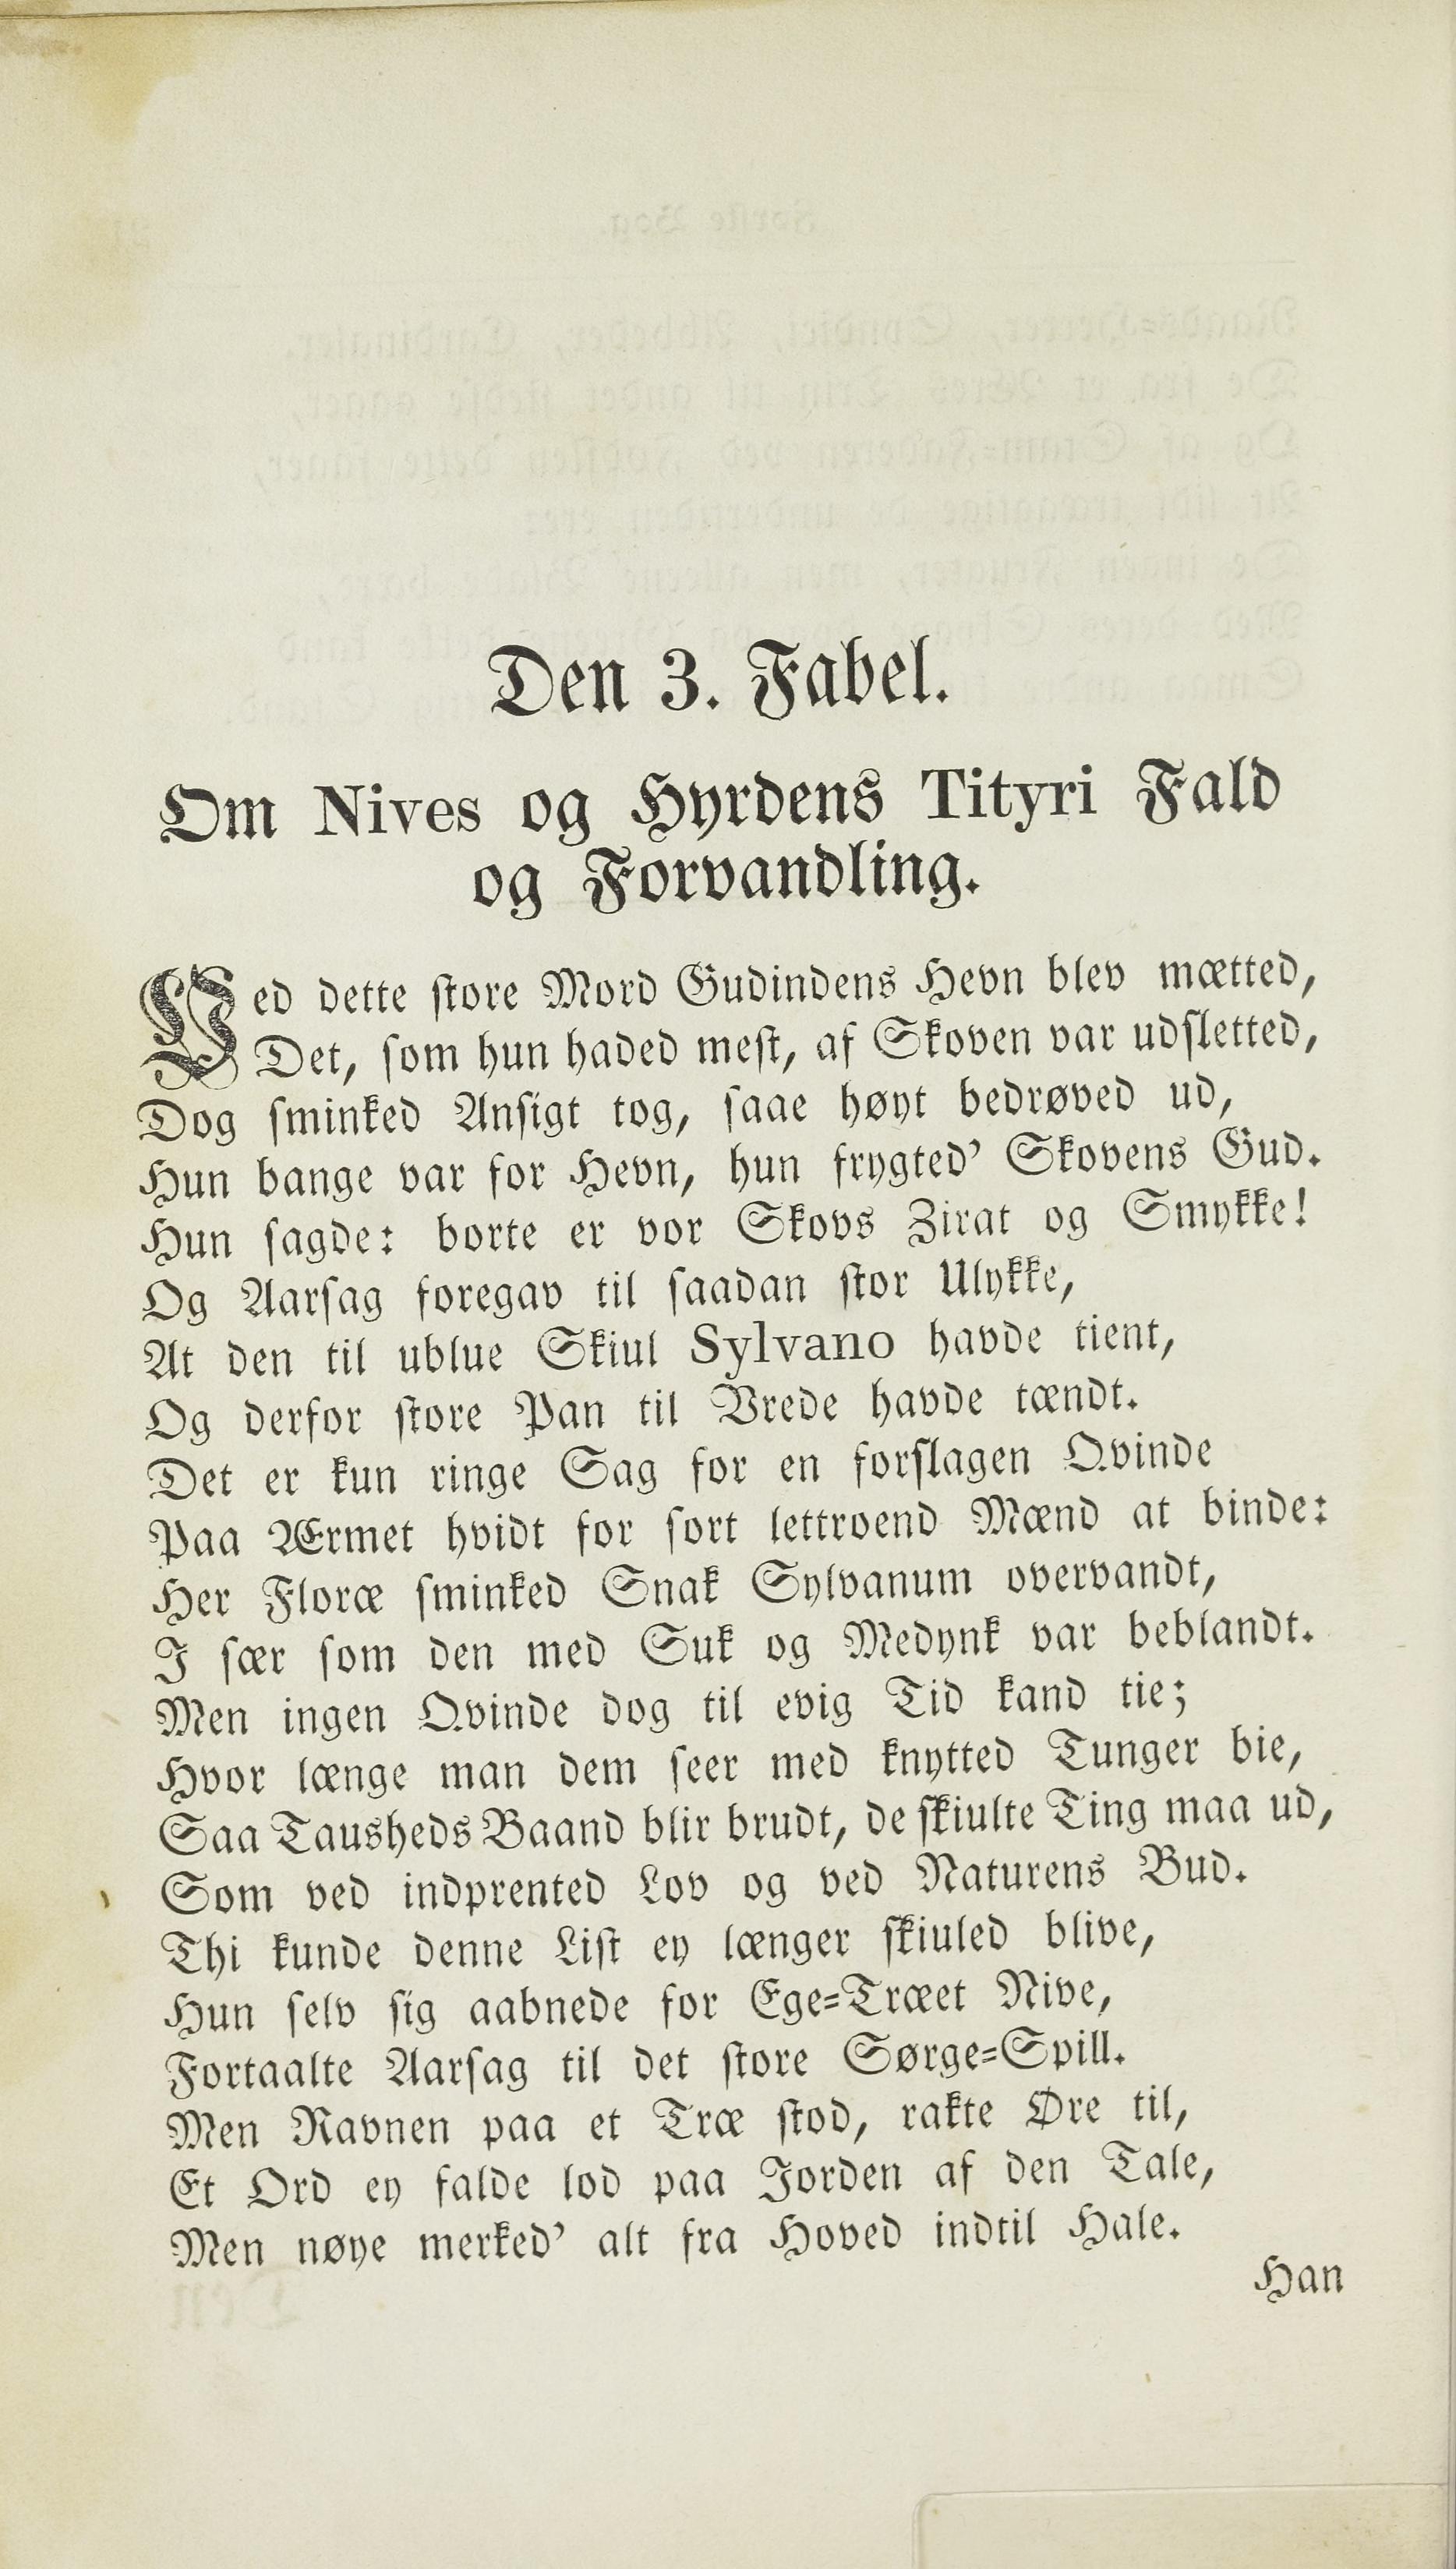 Den 3. Fabel.
Om Nives og Hyrdens Tityri Fald
og Forvandling.
Ved dette store Mord Gudindens Hevn blev mætted,
Det, som hun haded mest, af Skoven var udsletted,
Dog sminked Ansigt tog, saae høyt bedrøved ud,
Hun bange var for Hevn, hun frygted' Skovens Gud.
Hun sagde: borte er vor Skovs Zirat og Smykke!
Og Aarsag foregav til saadan stor Ulykke,
At den til ublue Skiul Sylvano havde tient,
Og derfor store Pan til Vrede havde tændt.
Det er kun ringe Sag for en forslagen Qvinde
Paa Ærmet hvidt for sort lettroend Mænd at binde:
Her Floræ sminked Snak Sylvanum overvandt,
I sær som den med Suk og Medynk var beblandt.
Men ingen Qvinde dog til evig Tid kand tie;
Hvor længe man dem seer med knytted Tunger bie,
Saa Tausheds Baand blir brudt, de skiulte Ting maa ud,
Som ved indprented Lov og ved Naturens Bud.
Thi kunde denne List ey længer skiuled blive,
Hun selv sig aabnede for Ege=Træet Nive,
Fortaalte Aarsag til det store Sørge=Spill.
Men Ravnen paa et Træ stod, rakte Øre til,
Et Ord ey falde lod paa Jorden af den Tale,
Men nøye merked' alt fra Hoved indtil Hale.
Han